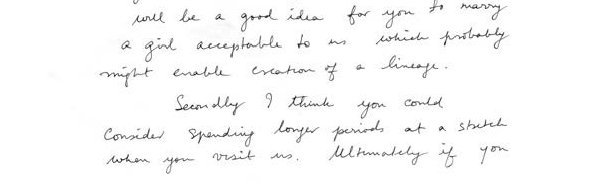 will be a good idea for you to marry
a girl acceptable to us which probably
might enable creation of a lineage.
Secondly I think you could
Consider spending longer periods at a stretch
when you visit us. Ultimately if you